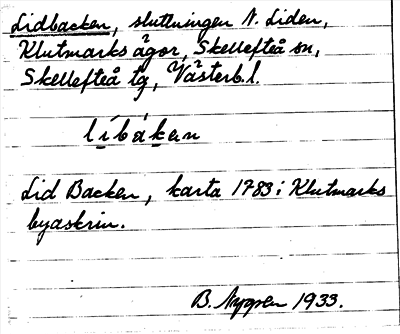 Lidbacken, sluttningen N. Liden,
Klutmarks ägor, Skellefteå sn,
Skellefteå tg, Västerb. l.
líbàkan
Lid Backen, karta 1783 i Klutmarks
byaskrin.
B. Nygren 1933.